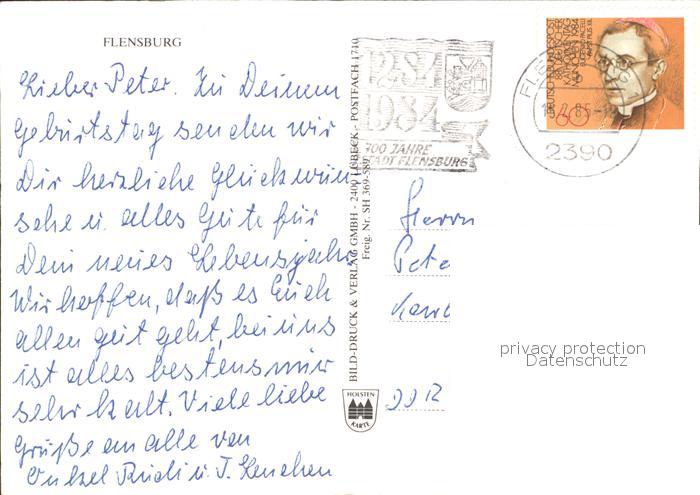 FLENSBURG
Lieber Peter. Zu Deinem
Geburtstag senden wir
Dir herzliche Glückwün-
sche u. alles Gute für
Dein neues Lebensjahr.
Wir hoffen, daß es Euch
allen gut geht, bei uns
ist alles bestens nur
sehr kalt. Viele liebe
Grüße an alle von
Onkel Rudi u. T. Lenchen
BILD-DRUCK & VERLAG GMBH - 2400 LÜBECK - POSTFACH 1710
Freig. Nr. SH 369-589
HOLSTEN
KARTE
1284
1984
700 JAHRE
STADT FLENSBURG
FLENSBURG
2390
DEUTSCHE BUNDESPOST
60
Herrn
Pete
privacy protection
Datenschutz